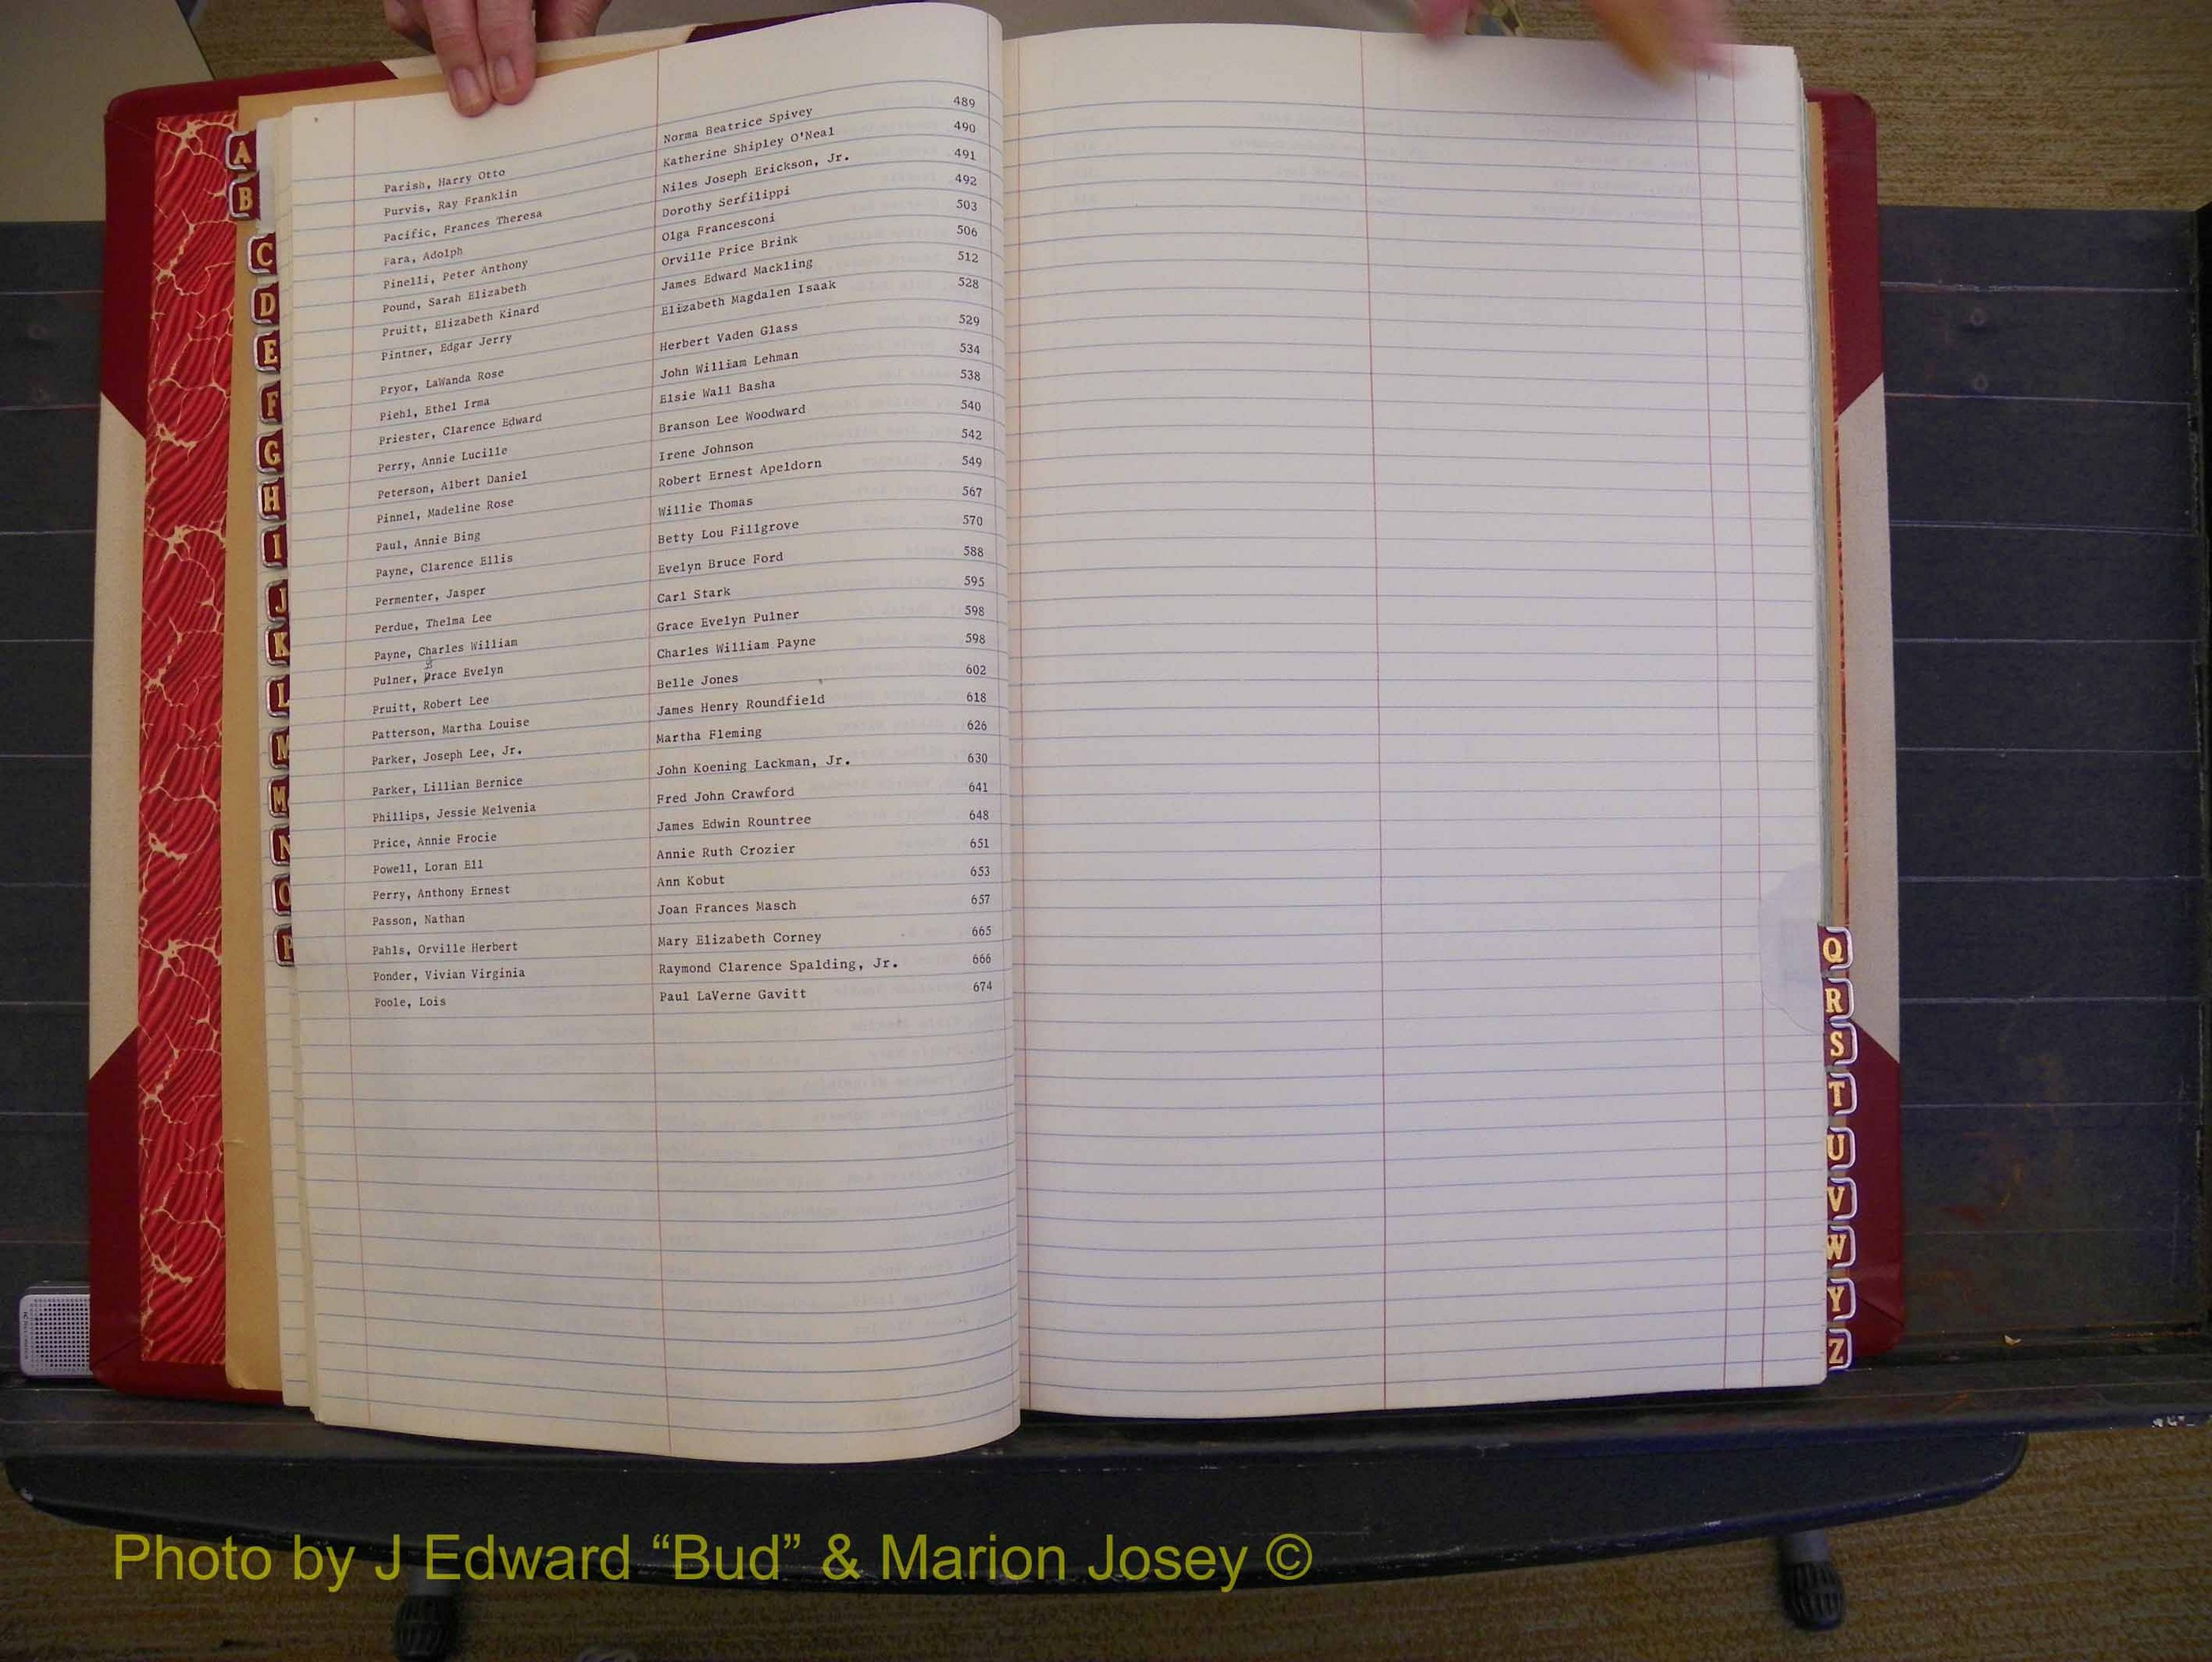 Parish, Harry Otto Norma Beatrice Spivey 489
Purvis, Ray Franklin Katherine Shipley O'Neal 490
Pacific, Frances Theresa Niles Joseph Erickson, Jr. 491
Fara, Adolph Dorothy Serfilippi 492
Pinelli, Peter Anthony Olga Francesconi 503
Pound, Sarah Elizabeth Orville Price Brink 506
Pruitt, Elizabeth Kinard James Edward Mackling 512
Pintner, Edgar Jerry Elizabeth Magdalen Isaak 528
Pryor, LaWanda Rose Herbert Vaden Glass 529
Piehl, Ethel Irma John William Lehman 534
Priester, Clarence Edward Elsie Wall Basha 538
Perry, Annie Lucille Branson Lee Woodward 540
Peterson, Albert Daniel Irene Johnson 542
Pinnel, Madeline Rose Robert Ernest Apeldorn 549
Paul, Annie Bing Willie Thomas 567
Payne, Clarence Ellis Betty Lou Fillgrove 570
Permenter, Jasper Evelyn Bruce Ford 588
Perdue, Thelma Lee Carl Stark 595
Payne, Charles William Grace Evelyn Pulner 598
Pulner, Grace Evelyn Charles William Payne 598
Pruitt, Robert Lee Belle Jones 602
Patterson, Martha Louise James Henry Roundfield 618
Parker, Joseph Lee, Jr. Martha Fleming 626
Parker, Lillian Bernice John Koening Lackman, Jr. 630
Phillips, Jessie Melvenia Fred John Crawford 641
Price, Annie Frocie James Edwin Rountree 648
Powell, Loran Ell Annie Ruth Crozier 651
Perry, Anthony Ernest Ann Kobut 653
Passon, Nathan Joan Frances Masch 657
Pahls, Orville Herbert Mary Elizabeth Corney 665
Ponder, Vivian Virginia Raymond Clarence Spalding, Jr. 666
Poole, Lois Paul LaVerne Gavitt 674
A
B
C
D
E
F
G
H
I
J
K
L
M
M
N
O
P
Q
R
S
T
U
V
W
Y
Z
Photo by J Edward “Bud” & Marion Josey ©